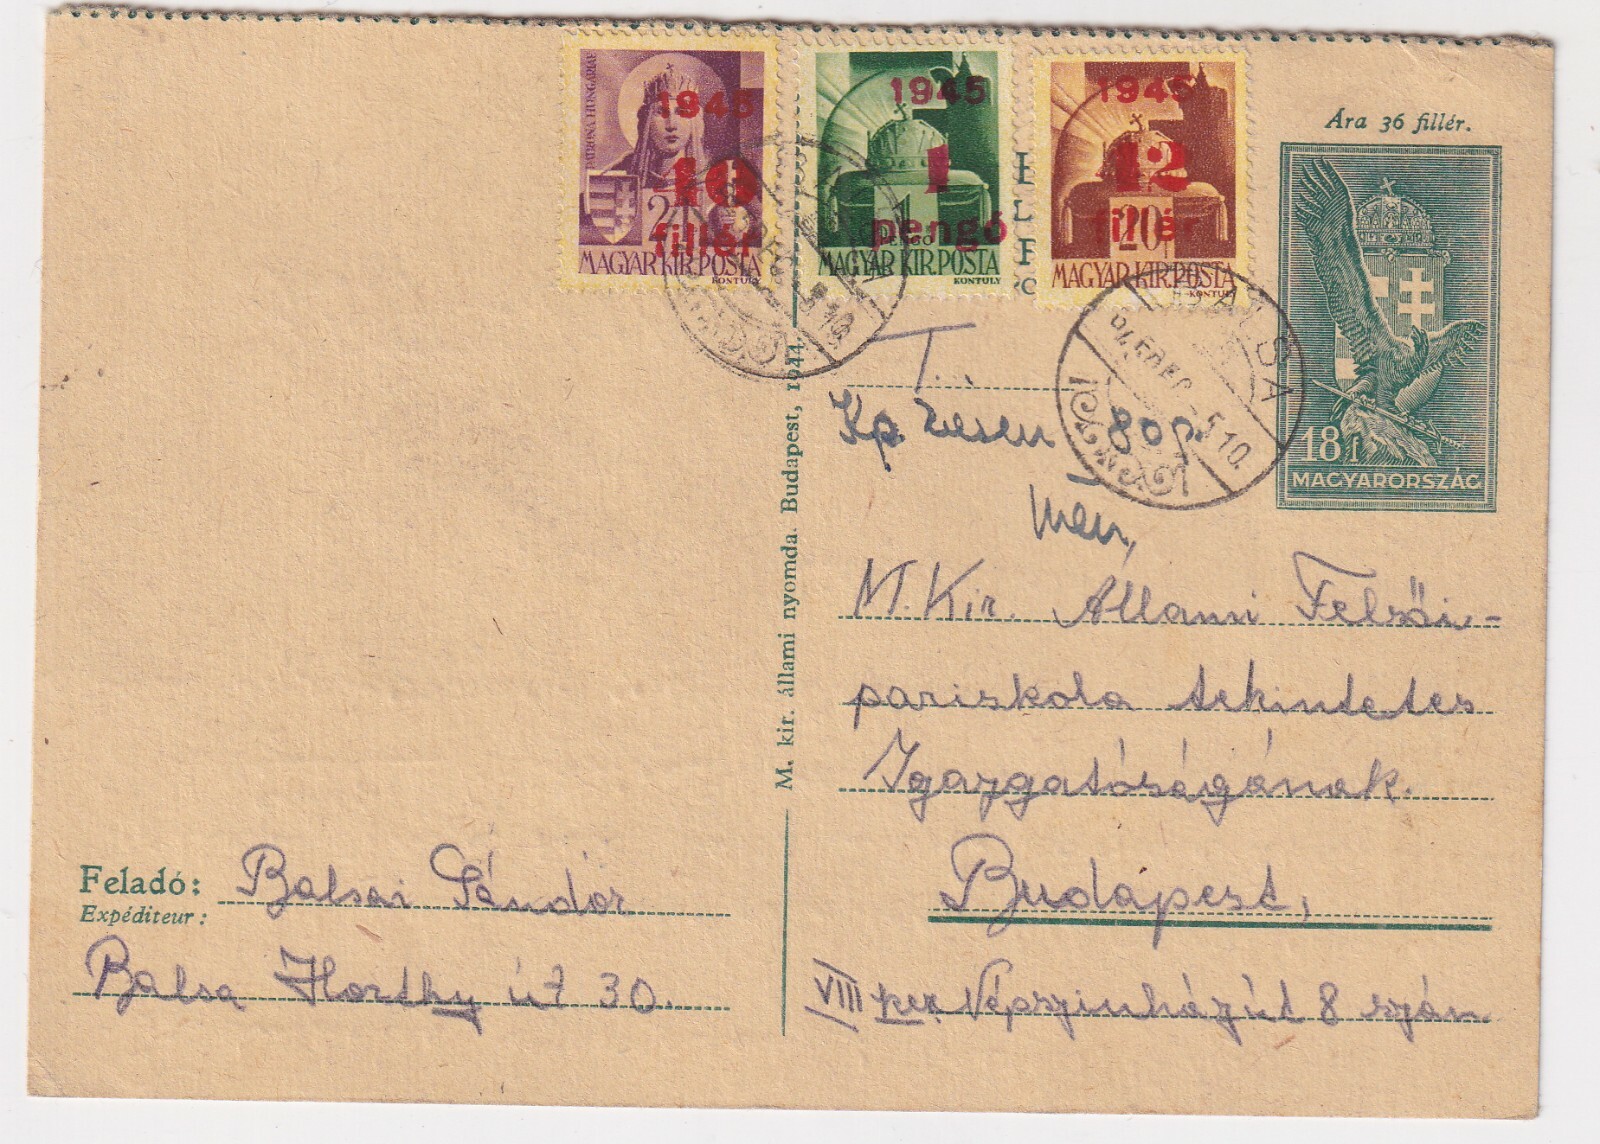 PATRONA HUNGARIAE
1945
10
fillér
MAGYAR KIR. POSTA
KONTULY
1945
1
pengő
MAGYAR KIR. POSTA
KONTULY
1945
42
fillér
20
MAGYAR KIR. POSTA
KONTULY
Ára 36 fillér.
18 f
MAGYARORSZÁG
BALSA
945 DEC -5 10
T.
80 p.
M. Kir. Állami Felsői-
pariskola tekintetes
Igazgatóságának.
Budapest,
VIII ker Népszinház út 8 szám
M. kir. állami nyomda. Budapest, 1944.
Feladó: Balsai Sándor
Expéditeur:
Balsa Horthy út 30.